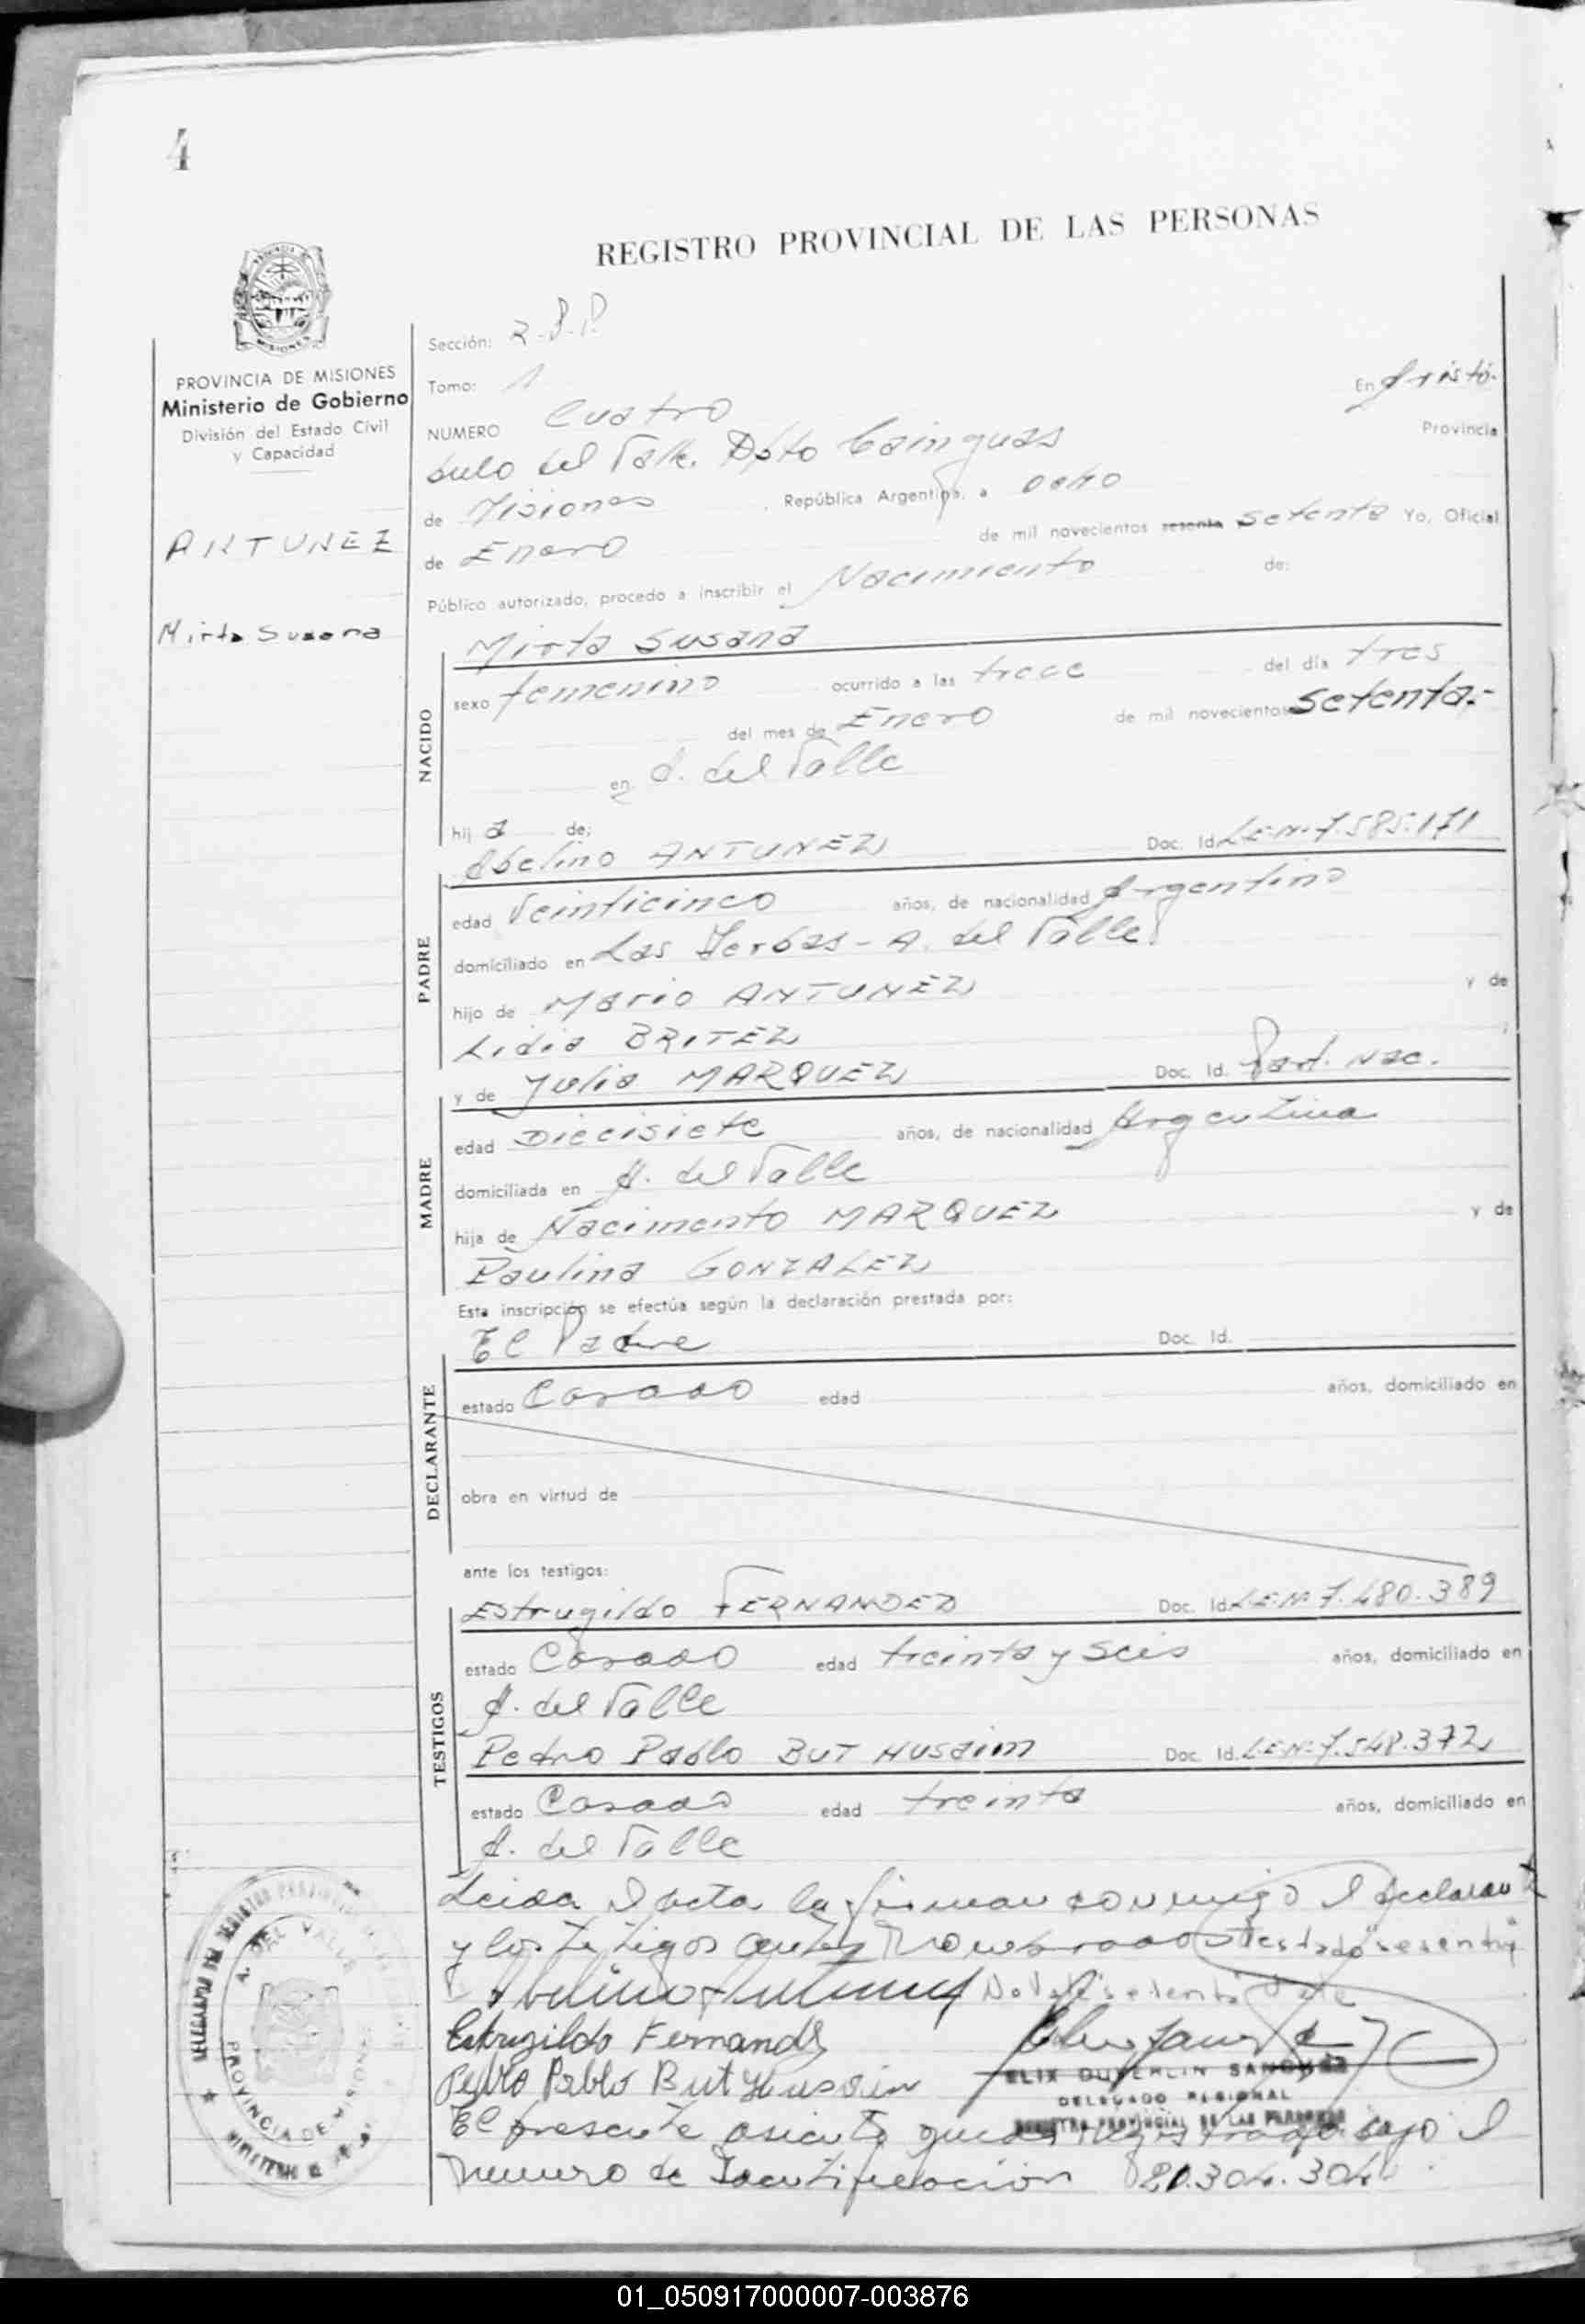 4
REGISTRO PROVINCIAL DE LAS PERSONAS
MISIONES
PROVINCIA DE MISIONES
Ministerio de Gobierno
División del Estado Civil
y Capacidad
ANTUNEZ
Mirta Susana
Sección:
Tomo: 1
En Aristó-
NUMERO Cuatro
Provincia
bulo del Valle. Dpto Cainguas
de Misiones, República Argentina, a ocho
de Enero de mil novecientos sesenta setenta Yo, Oficial
Público autorizado, procedo a inscribir el Nacimiento de:
Mirta Susana
NACIDO
sexo femenino ocurrido a las trece del día tres
del mes de Enero de mil novecientos setenta.-
en A. del Valle
hij a de:
Abelino ANTUNEZ Doc. Id. L.E.Nº 7.585.171
PADRE
edad Veinticinco años, de nacionalidad Argentino
domiciliado en Las Yerbas - A. del Valle
hijo de Mario ANTUNEZ y de
Lidia BRITEZ
y de Julia MARQUEZ Doc. Id. Part. Nac.
MADRE
edad Diecisiete años, de nacionalidad Argentina
domiciliada en A. del Valle
hija de Nacimento MARQUEZ y de
Paulina GONZALEZ
Esta inscripción se efectúa según la declaración prestada por:
El Padre Doc. Id.
DECLARANTE
estado Casado edad años, domiciliado en
obra en virtud de
ante los testigos:
Estrugildo FERNANDEZ Doc. Id. L.E.Nº 7.480.389
TESTIGOS
estado Casado edad treinta y seis años, domiciliado en
A. del Valle
Pedro Pablo BUT HUSaim Doc. Id. L.E.Nº 7.548.372
estado Casado edad treinta años, domiciliado en
A. del Valle
Leida el acta la firman conmigo el declarante
y los testigos antes nombrados Testado "sesenta"
No Vale "setenta" Vale
Estrugildo Fernandez
Pedro Pablo But Hussein
SANCHEZ
DELEGADO REGIONAL
REGISTRO PROVINCIAL DE LAS PERSONAS
El presente asiento queda registrado bajo el
Numero de Identificación 21.304.304
A. DEL VALLE
PROVINCIA DE MISIONES
01_050917000007-003876